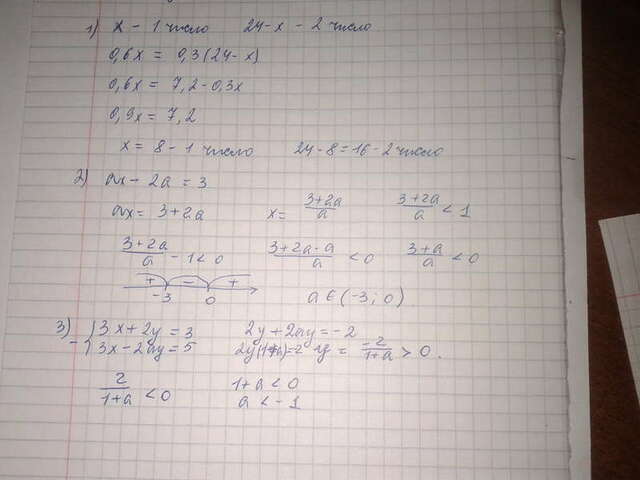 1) x - 1 число 24-x - 2 число.
0,6x = 0,3(24-x)
0,6x = 7,2-0,3x
0,9x = 7,2
x = 8 - 1 число 24-8=16-2 число
2) ax - 2a = 3
ax = 3+2a x = (3+2a)/a (3+2a)/a < 1
(3+2a)/a - 1 < 0 (3+2a-a)/a < 0 (3+a)/a < 0
+ - +
-3 0 a ∈ (-3; 0)
3) {3x+2y = 3 2y+2ay = -2
- {3x-2ay = 5 2y(1+a)=-2 y = -2/(1+a) > 0.
2/(1+a) < 0 1+a < 0
a < -1